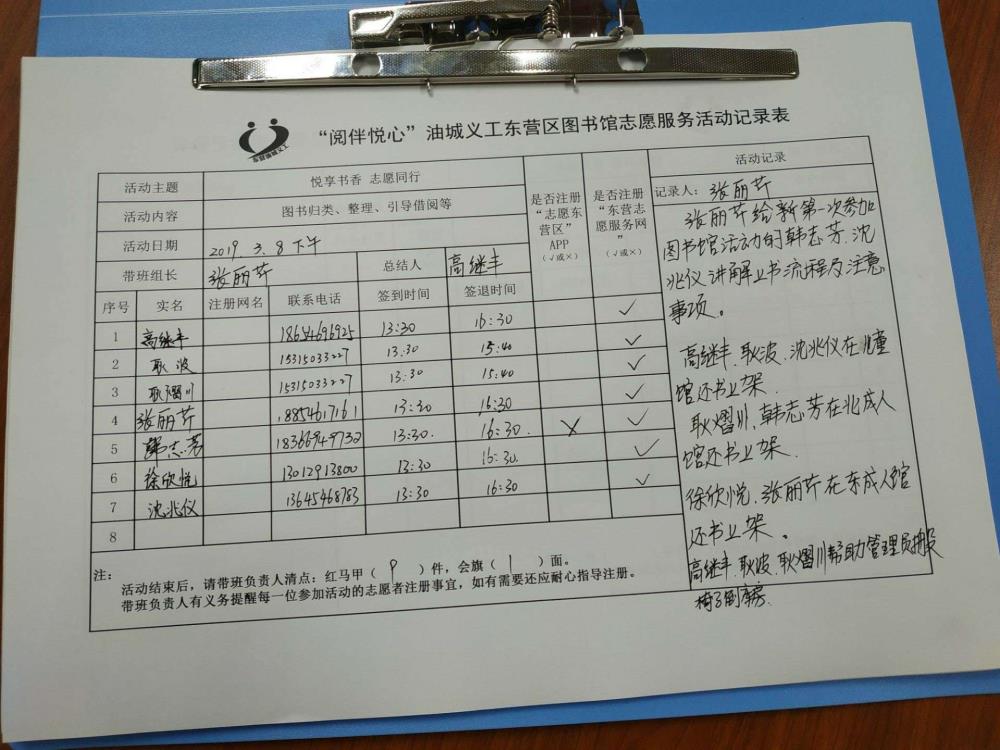 东营油城义工
“阅伴悦心”油城义工东营区图书馆志愿服务活动记录表
活动主题 悦享书香 志愿同行
活动内容 图书归类、整理、引导借阅等
活动日期 2019 3.8 下午
带班组长 张丽芹 总结人 高继丰
是否注册“志愿东营区”APP（√或×）
是否注册“东营志愿服务网”（√或×）
序号 实名 注册网名 联系电话 签到时间 签退时间
1 高继丰 18654696925 13:30 16:30 √
2 耿波 15315033227 13:30 15:40 √
3 耿熠川 15315033227 13:30 15:40 √
4 张丽芹 18854617161 13:30 16:30 √
5 韩志芳 18366949732 13:30. 16:30. × √
6 徐欣悦 13012913800 13:30 16:30. √
7 沈兆仪 13645468783 13:30 16:30 √
8
注：
活动结束后，请带班负责人清点：红马甲（ 9 ）件，会旗（ 1 ）面。
带班负责人有义务提醒每一位参加活动的志愿者注册事宜，如有需要还应耐心指导注册。
活动记录
记录人：张丽芹
张丽芹给新第一次参加
图书馆活动的韩志芳、沈
兆仪讲解上书流程及注意
事项。
高继丰、耿波、沈兆仪在儿童
馆还书上架。
耿熠川、韩志芳在北成人
馆还书上架.
徐欣悦、张丽芹在东成人馆
还书上架。
高继丰、耿波、耿熠川帮助管理员搬
椅子到库房.